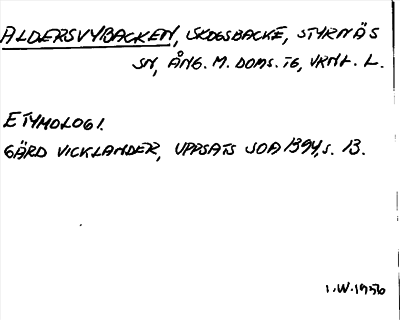 ALDERSVYBACKEN, SKOGSBACKE, STYRNÄS
SN, ÅNG. M. DOMS. TG, VRNL. L.
ETYMOLOGI.
GÄRD VICKLANDER, UPPSATS SOA 1394, S. 13.
I.W.1956